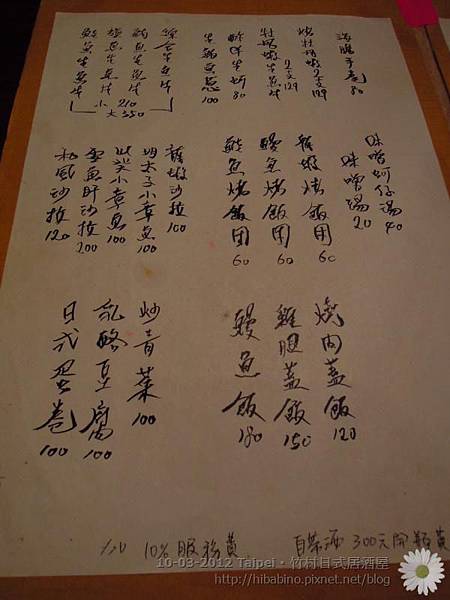 海膽手卷 80
燒牡丹蝦2支129
牡丹蝦生魚片2支129
酢牡蚵 80
生鮪魚蔥 100
綜合生魚片
鮪魚生魚片
旗魚生魚片
鮭魚生魚片
小 210
大 350
味噌蚵仔湯 40
味噌湯 20
龍蝦烤飯團 60
鰻魚烤飯團 60
鮭魚烤飯團 60
龍蝦沙拉 100
明太子小章魚 100
芥茉小章魚 100
雪魚肝沙拉 200
和風沙拉 120
燒肉蓋飯 120
雞腿蓋飯 150
鰻魚飯 180
炒青菜 100
乳酪豆腐 100
日式蛋卷 100
10%服務費
自帶酒 300元開瓶費
10-03-2012 Taipei‧竹村日式居酒屋
http://hibabino.pixnet.net/blog